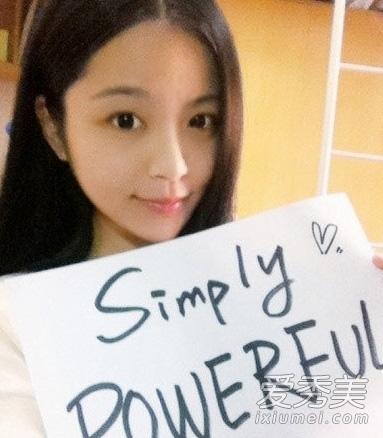 Simply ♡..
POWERFUL
爱秀美
ixiumei.com